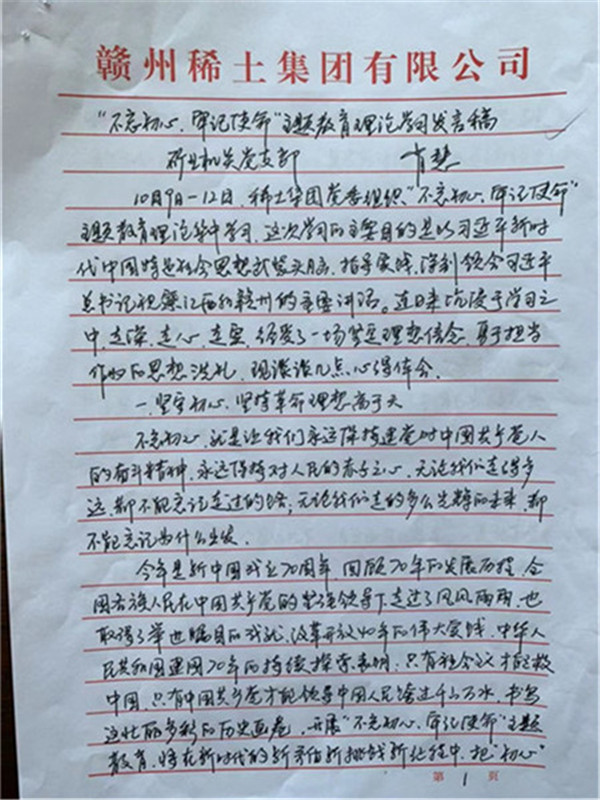 赣州稀土集团有限公司
“不忘初心、牢记使命”主题教育理论学习发言稿
矿业机关党支部 肖慧
10月9日—12日，稀土集团党委组织“不忘初心、牢记使命”
主题教育理论集中学习，这次学习的主要目的是以习近平新时
代中国特色社会思想武装头脑，指导实践，深刻领会习近平
总书记视察江西和赣州的重要讲话。连日来沉浸于学习之
中，走深、走心、走实，领受了一场坚定理想信念，勇于担当
作为的思想洗礼，现谈谈几点心得体会。
一、坚守初心，坚持革命理想高于天
不忘初心，就是让我们永远保持建党时中国共产党人
的奋斗精神，永远保持对人民的赤子之心，无论我们走得多
远，都不能忘记走过的路；无论我们走的多么光辉的未来，都
不能忘记为什么出发。
今年是新中国成立70周年，回顾70年的发展历程，全
国各族人民在中国共产党的坚强领导下走过了风风雨雨，也
取得了举世瞩目的成就，改革开放40年的伟大实践，中华人
民共和国建国70年的持续探索表明：只有社会主义才能救
中国，只有中国共产党才能领导中国人民跨过千山万水，书写
这壮丽多彩的历史画卷，开展“不忘初心、牢记使命”主题
教育，将在新时代的新矛盾新挑战新征程中，把“初心”
第 1 页